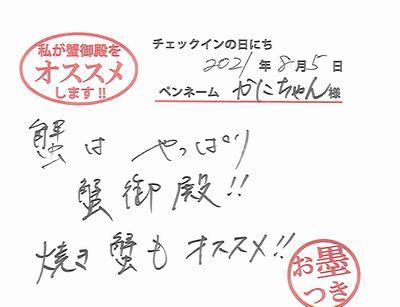 私が蟹御殿を
オススメ
します!!
チェックインの日にち
2021年8月5日
ペンネーム かにちゃん様
蟹は やっぱり
蟹御殿!!
焼き蟹もオススメ!!
お墨
つき